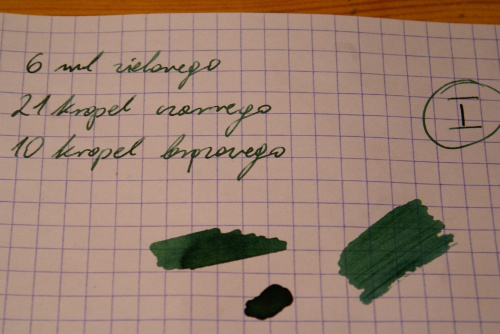 6 ml zielonego
21 kropel czarnego
10 kropel brązowego
I